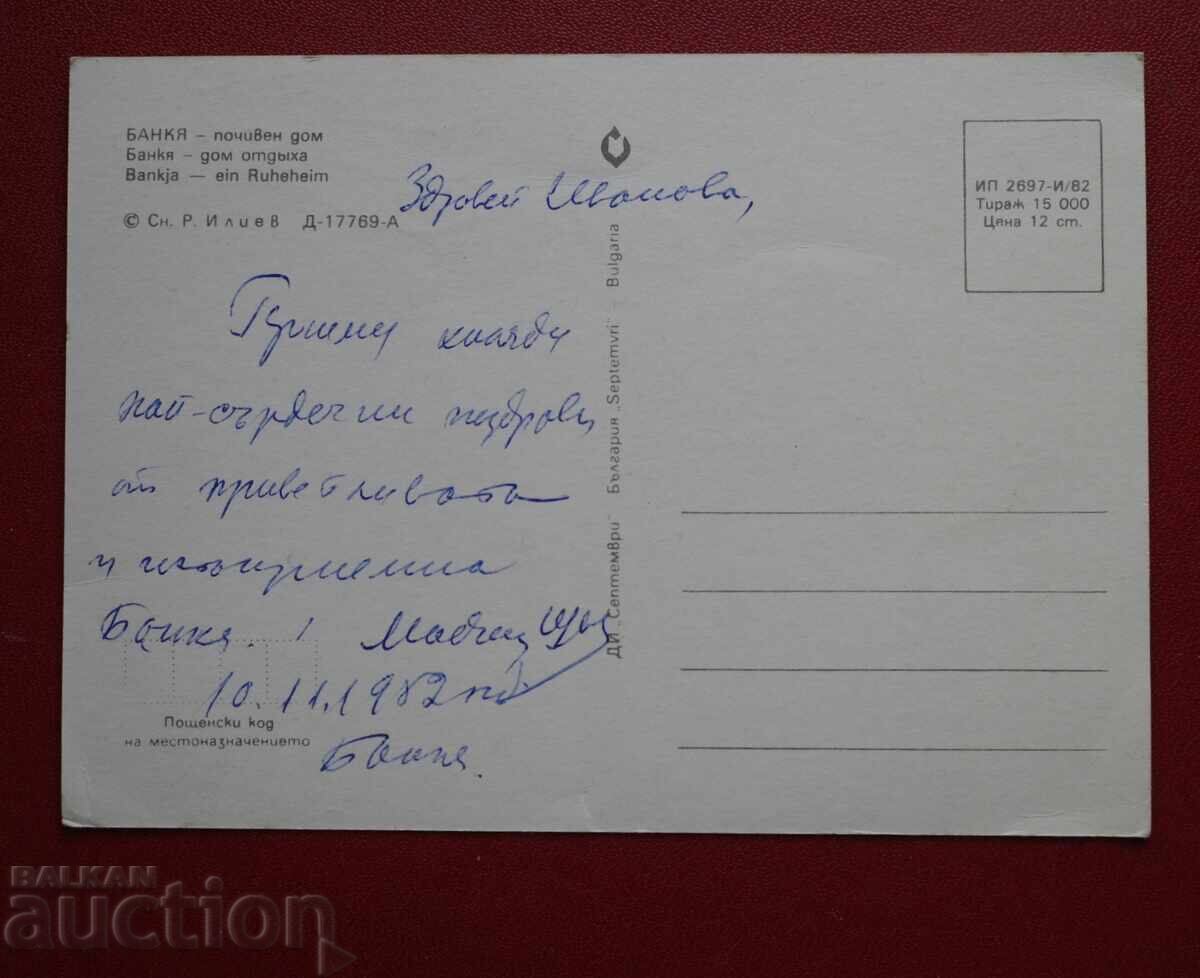 БАНКЯ – почивен дом
Банкя – дом отдыха
Bankja — ein Ruheheim
© Сн. Р. Илиев Д-17769-А
ИП 2697-И/82
Тираж 15 000
Цена 12 ст.
Здравей Иванова,
най-сърдечни поздрави
от приветливата
и
Банкя.
10.11.1982
Банкя.
Пощенски код
на местоназначението
ДИ „Септември" България „Septemvri" Bulgaria
BALKAN
auction